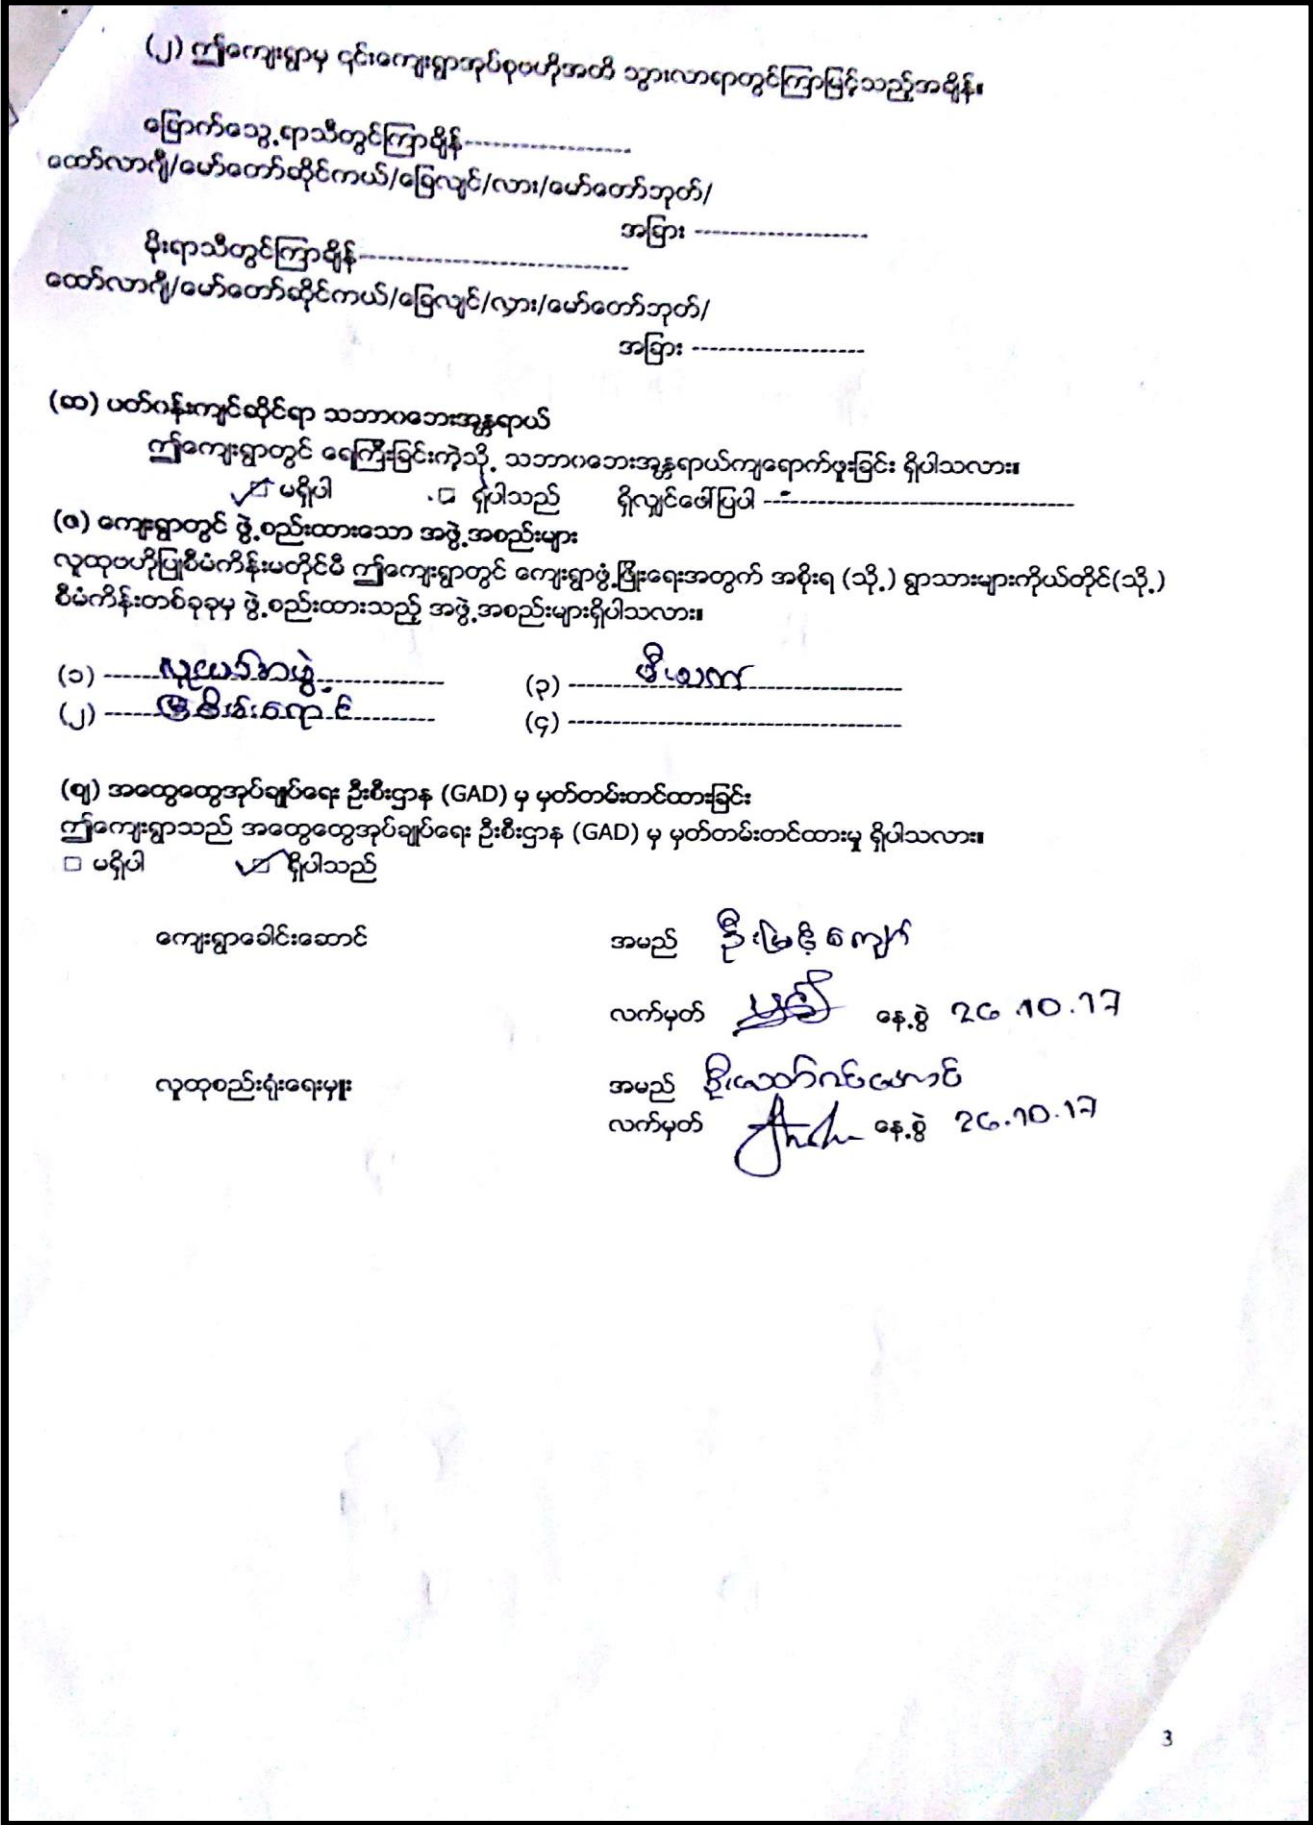 (၂) ဤကျေးရွာမှ ၎င်းကျေးရွာအုပ်စုဗဟိုအတိ သွားလာရာတွင်ကြာမြင့်သည့်အချိန်။
ခြောက်သွေ့ရာသီတွင်ကြာချိန်-------------------
ထော်လာဂျီ/မော်တော်ဆိုင်ကယ်/ခြေလျင်/လား/မော်တော်ဘုတ်/
အခြား -------------------
မိုးရာသီတွင်ကြာချိန်------------------------------
ထော်လာဂျီ/မော်တော်ဆိုင်ကယ်/ခြေလျင်/လှား/မော်တော်ဘုတ်/
အခြား -------------------
(ဆ) ပတ်ဝန်းကျင်ဆိုင်ရာ သဘာဝဘေးအန္တရာယ်
ဤကျေးရွာတွင် ရေကြီးခြင်းကဲ့သို့ သဘာဝဘေးအန္တရာယ်ကျရောက်ဖူးခြင်း ရှိပါသလား။
☑ မရှိပါ □ ရှိပါသည် ရှိလျှင်ဖော်ပြပါ ----------------------------------
(ဇ) ကျေးရွာတွင် ဖွဲ့စည်းထားသော အဖွဲ့အစည်းများ
လူထုဗဟိုပြုစီမံကိန်းမတိုင်မီ ဤကျေးရွာတွင် ကျေးရွာဖွံ့ဖြိုးရေးအတွက် အစိုးရ (သို့) ရွာသားများကိုယ်တိုင်(သို့)
စီမံကိန်းတစ်ခုခုမှ ဖွဲ့စည်းထားသည့် အဖွဲ့အစည်းများရှိပါသလား။
(၁) လူငယ်အဖွဲ့ (၃) မီးသတ်
(၂) မြစိမ်းရောင် (၄) -------------------------------------
(ဈ) အထွေထွေအုပ်ချုပ်ရေး ဦးစီးဌာန (GAD) မှ မှတ်တမ်းတင်ထားခြင်း
ဤကျေးရွာသည် အထွေထွေအုပ်ချုပ်ရေး ဦးစီးဌာန (GAD) မှ မှတ်တမ်းတင်ထားမှု ရှိပါသလား။
□ မရှိပါ ☑ ရှိပါသည်
ကျေးရွာခေါင်းဆောင် အမည် ဦးမြင့်ကျော်
လက်မှတ် နေ့စွဲ 26.10.17
လူထုစည်းရုံးရေးမှူး အမည်
လက်မှတ် နေ့စွဲ 26.10.17
3